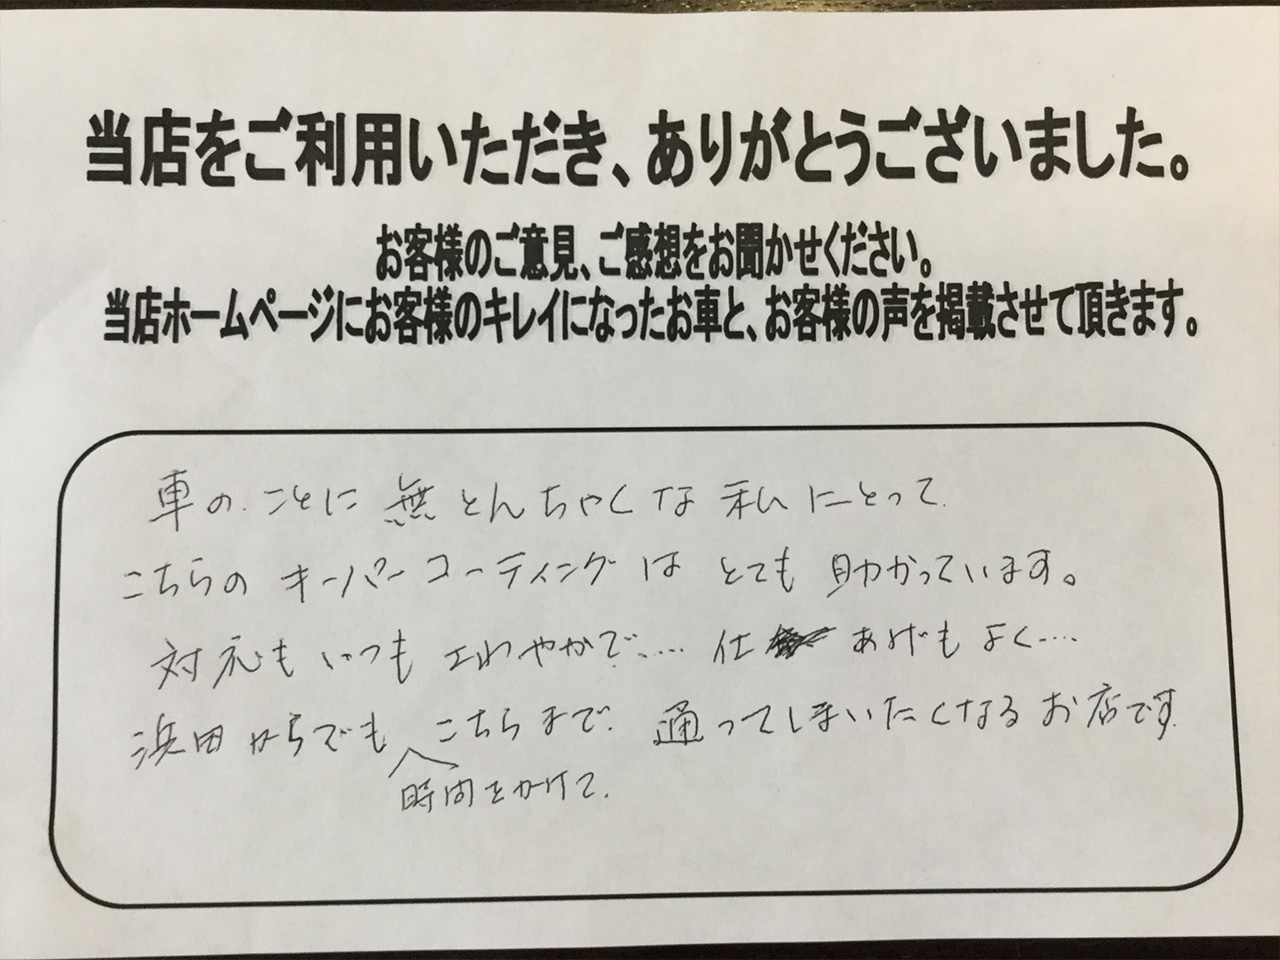 当店をご利用いただき、ありがとうございました。
お客様のご意見、ご感想をお聞かせください。
当店ホームページにお客様のキレイになったお車と、お客様の声を掲載させて頂きます。
車のことに無とんちゃくな私にとって
こちらのキーパーコーティングはとても助かっています。
対応もいつもさわやかで……仕あげもよく…
浜田からでもこちらまで通ってしまいたくなるお店です
時間をかけて